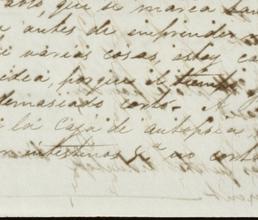 que se marca
antes de emprender
varias cosas, estoy
idea, porque el tiempo
demasiado corto. A
la caja de autopsia
intestinos, &a no corta